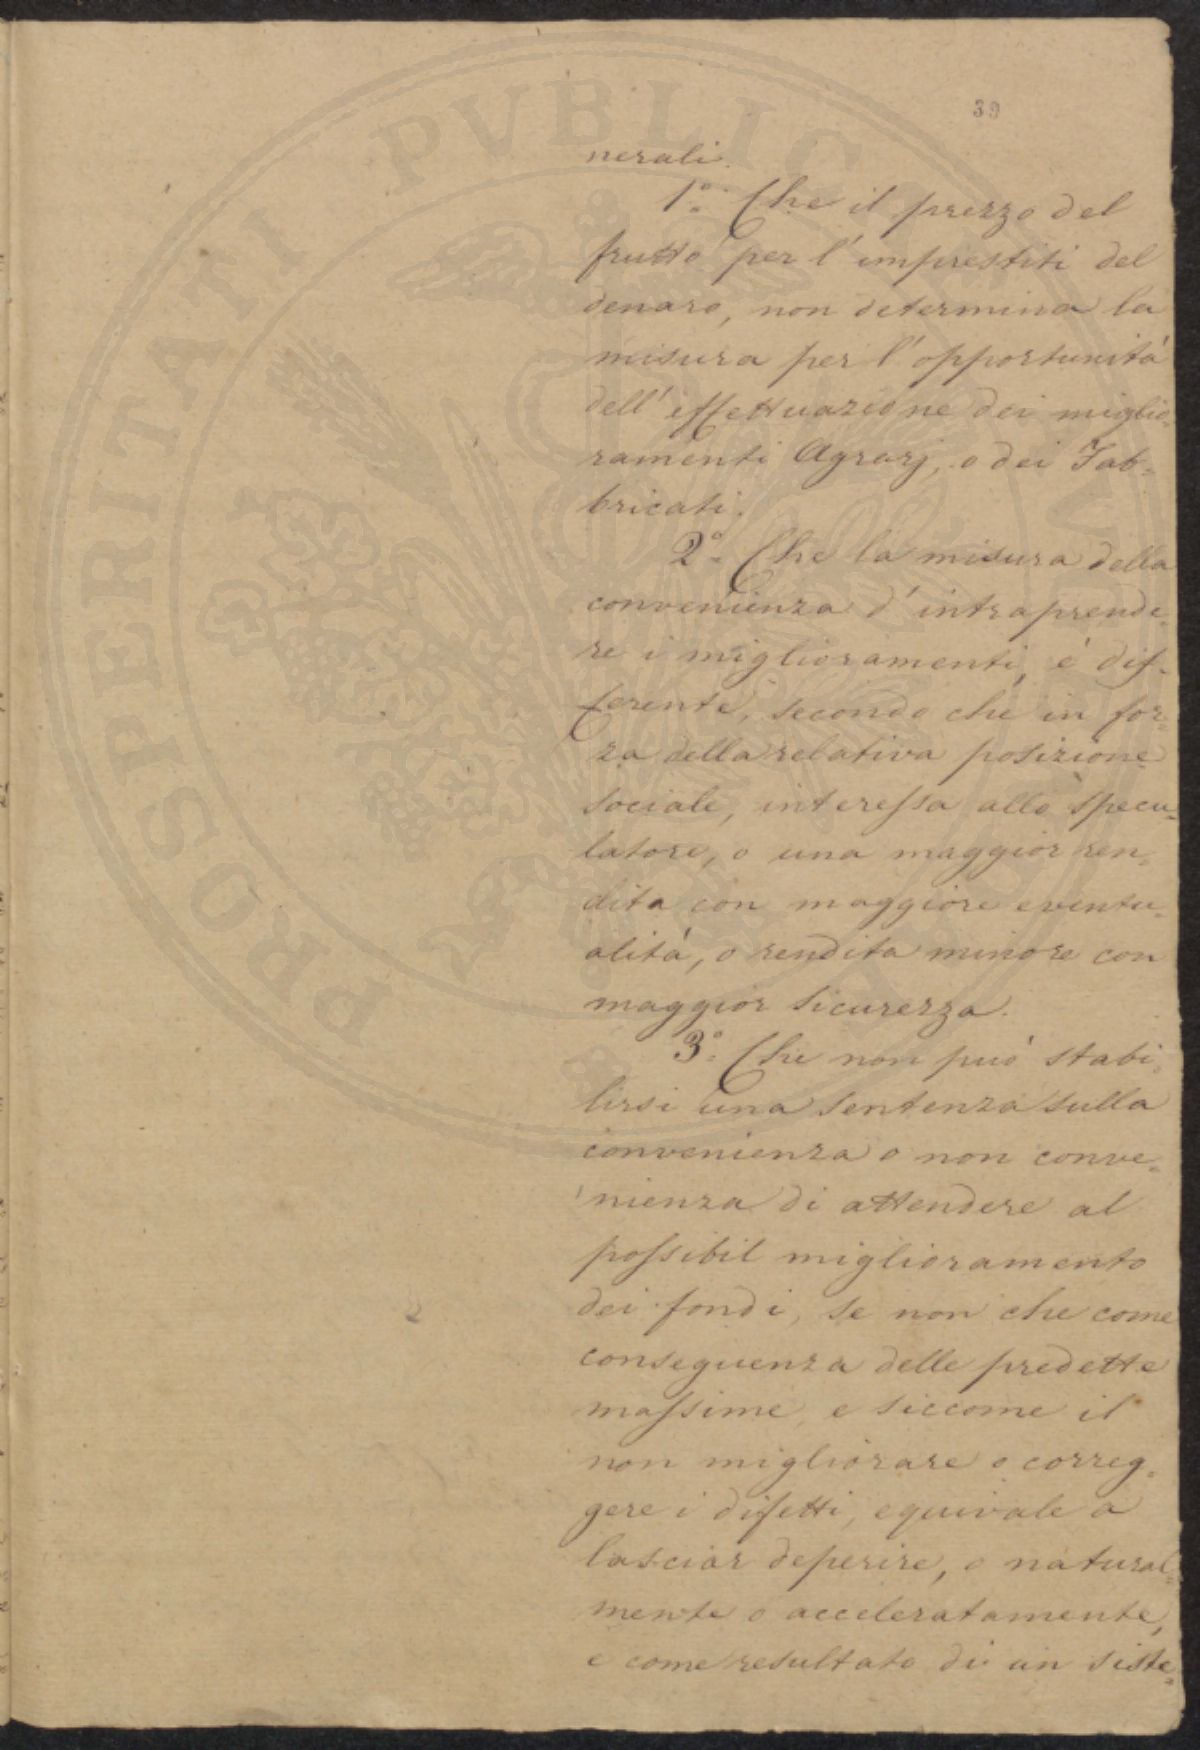 39
nerali.
1.° Che il prezzo del
frutto per l'imprestiti del
denaro, non determina la
misura per l'opportunità
dell'effettuazione dei miglio-
ramenti Agrarj, o dei Fab-
bricati.
2.° Che la misura della
convenienza d'intraprende-
re i miglioramenti, è dif-
ferente, secondo che in for-
za della relativa posizione
sociale, interessa allo specu-
latore, o una maggior ren-
dita con maggiore eventu-
alità, o rendita minore con
maggior sicurezza.
3.° Che non può stabi-
lirsi una sentenza sulla
convenienza o non conve-
nienza di attendere al
possibil miglioramento
dei fondi, se non che come
conseguenza delle predette
massime, e siccome il
non migliorare o correg-
gere i difetti, equivale a
lasciar deperire, o natural-
mente o acceleratamente,
e come resultato di un siste-
PROSPERITATI PVBLIC